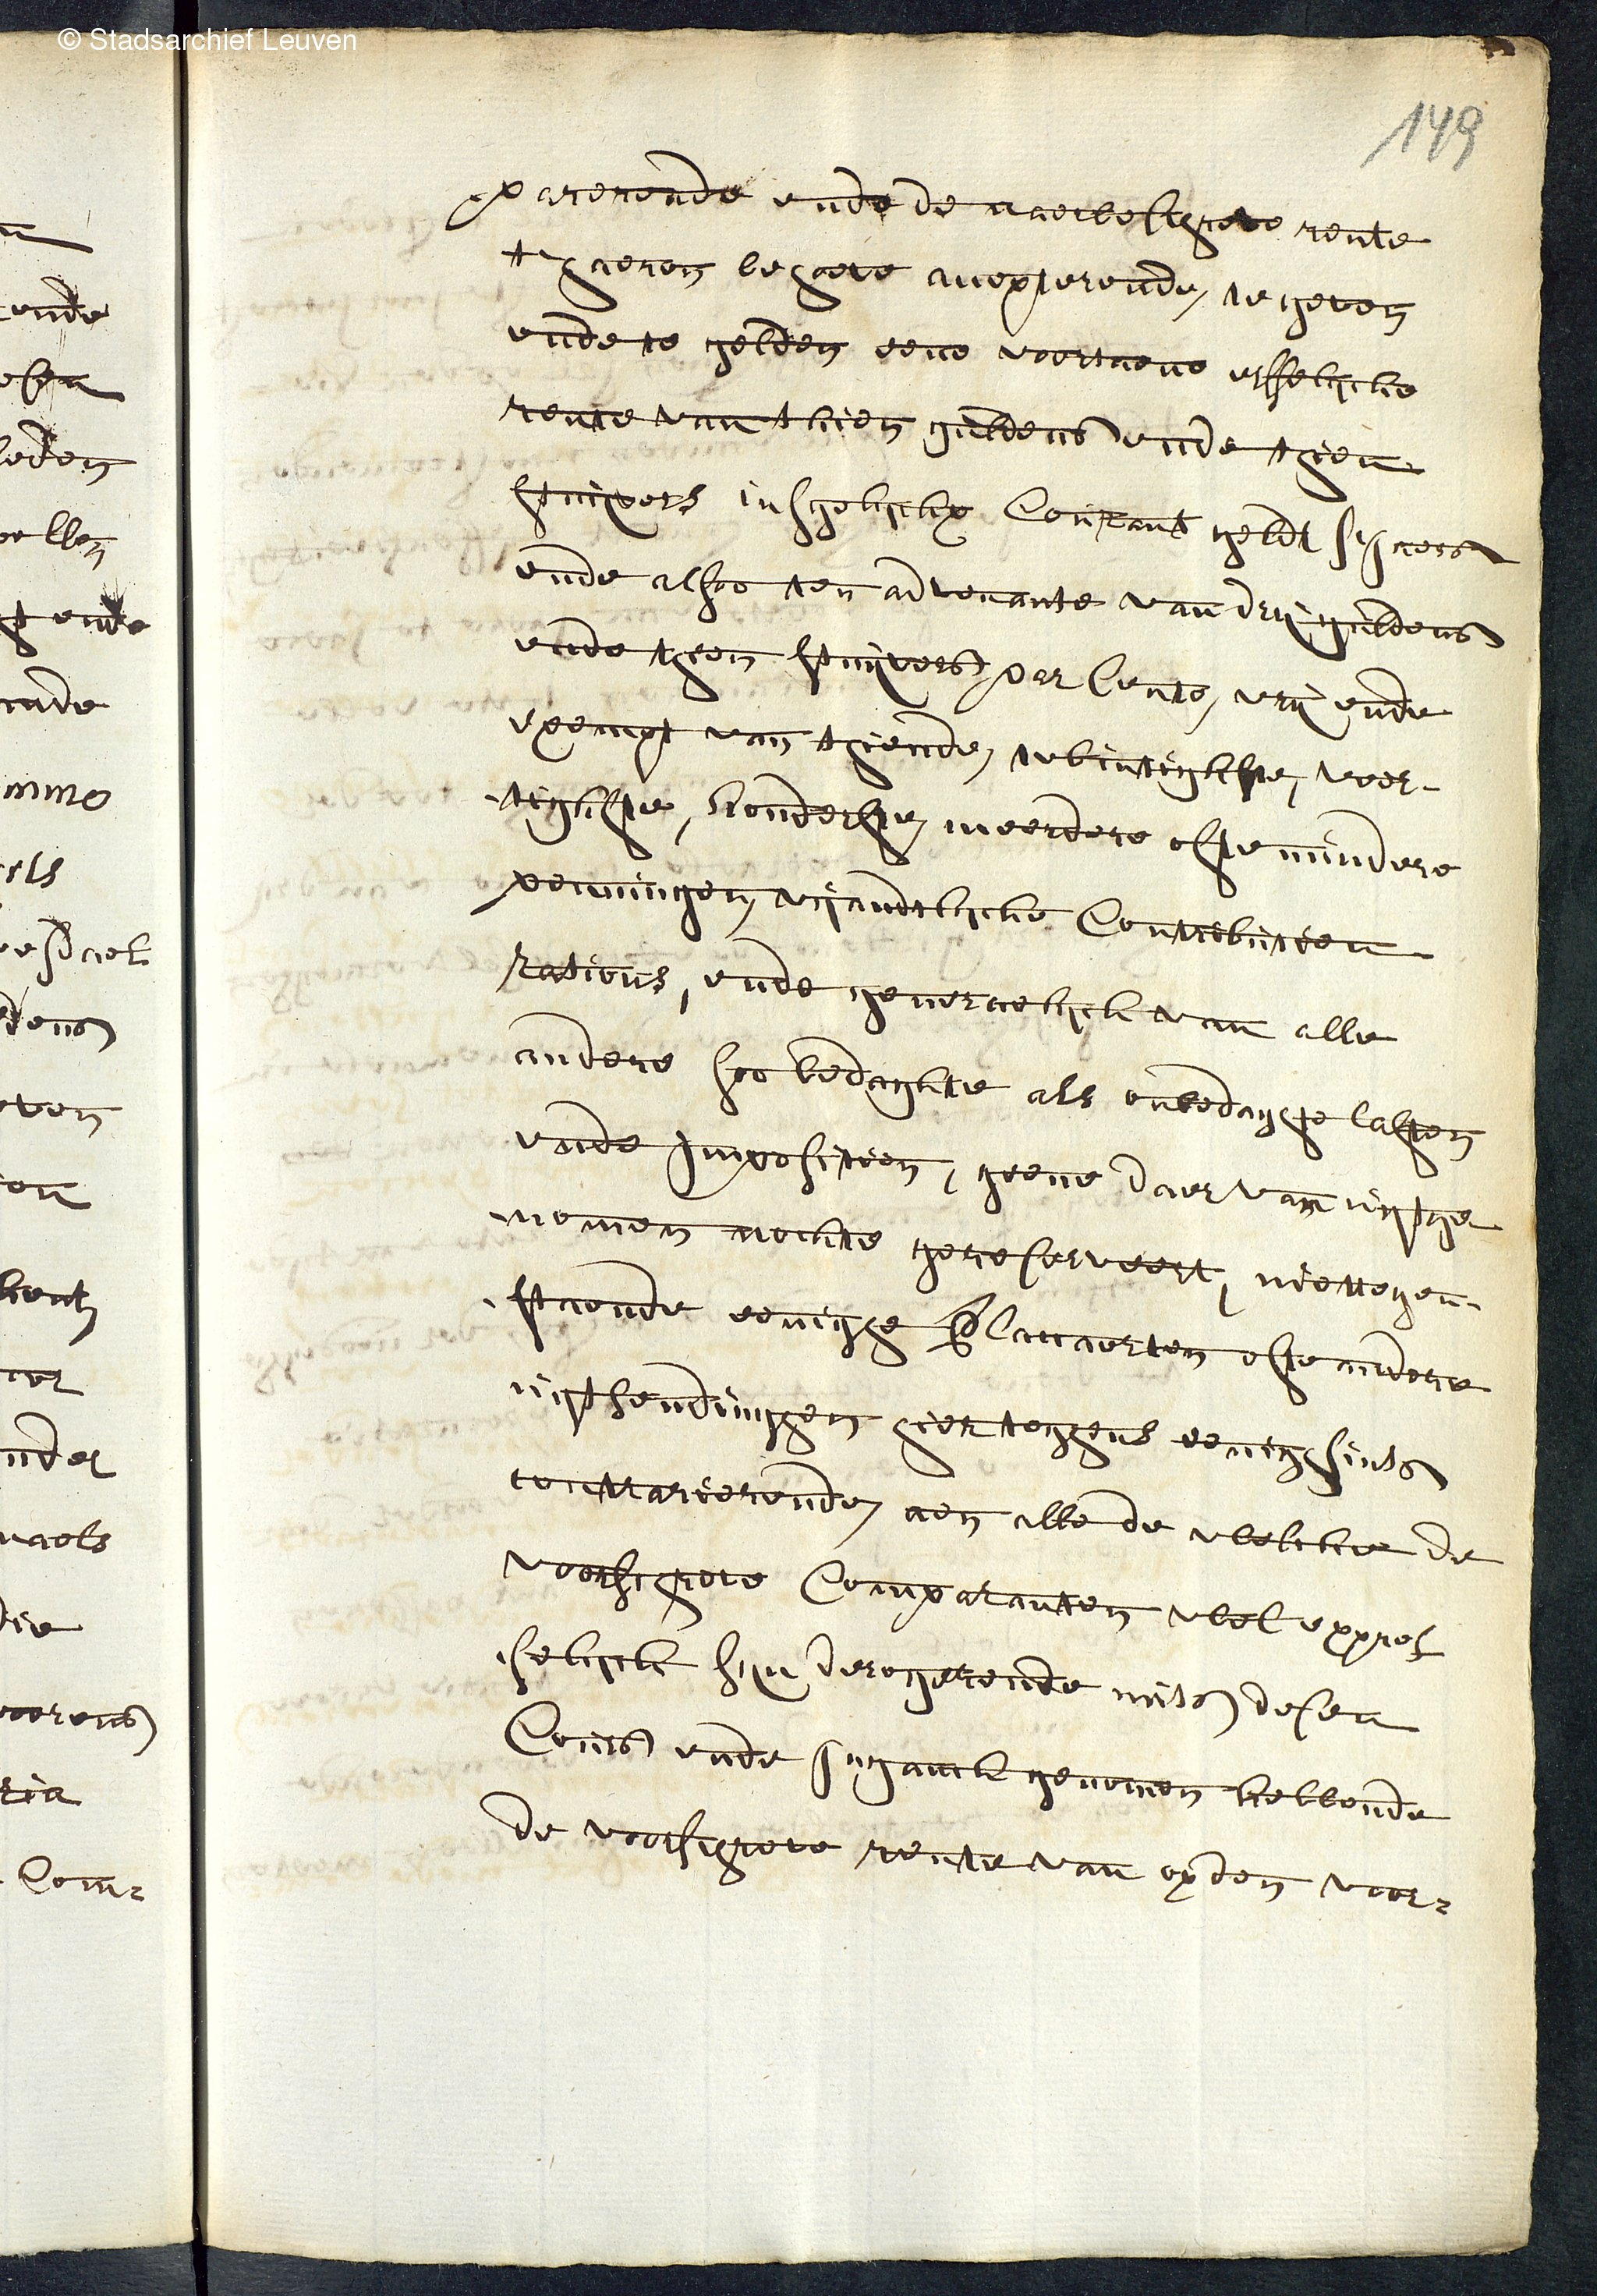 © Stadsarchief Leuven
149
parerende ende de naerbeschreve rente
t'haeren behoeve accepterende, te geven
ende te gelden eene voortaene erffelycke
rente van thien guldens ende thien
stuyvers insgelyckx Courant geldt s'jaers
ende alsoo ten advenante van dry guldens
ende thien stuyvers par Cento, vry ende
exempt van thiende, twintighste, veer-
tighste, hondertste, meerdere ofte mindere
penningen, vyandtlycke Contributien
Rations, ende generaelyck van alle
andere soo bedachte als onbedachte lasten
ende Impositien, geene daer van uytge
nomen nochte gereserveert, niettegen-
staende eenighe Placcaerten ofte andere
uytsendinghen hier teghens eenighsints
contrarierende, aen alle de welcke de
voorschreve Comparanten wel expres
selyck syn derogerende mits desen
Cours ende ganck genomen hebbende
de voorschreve rente van op den voor-
ende
leden
ende
immo
als
dens
ven
aer
nder
naels
die
voorens
ria
Com-